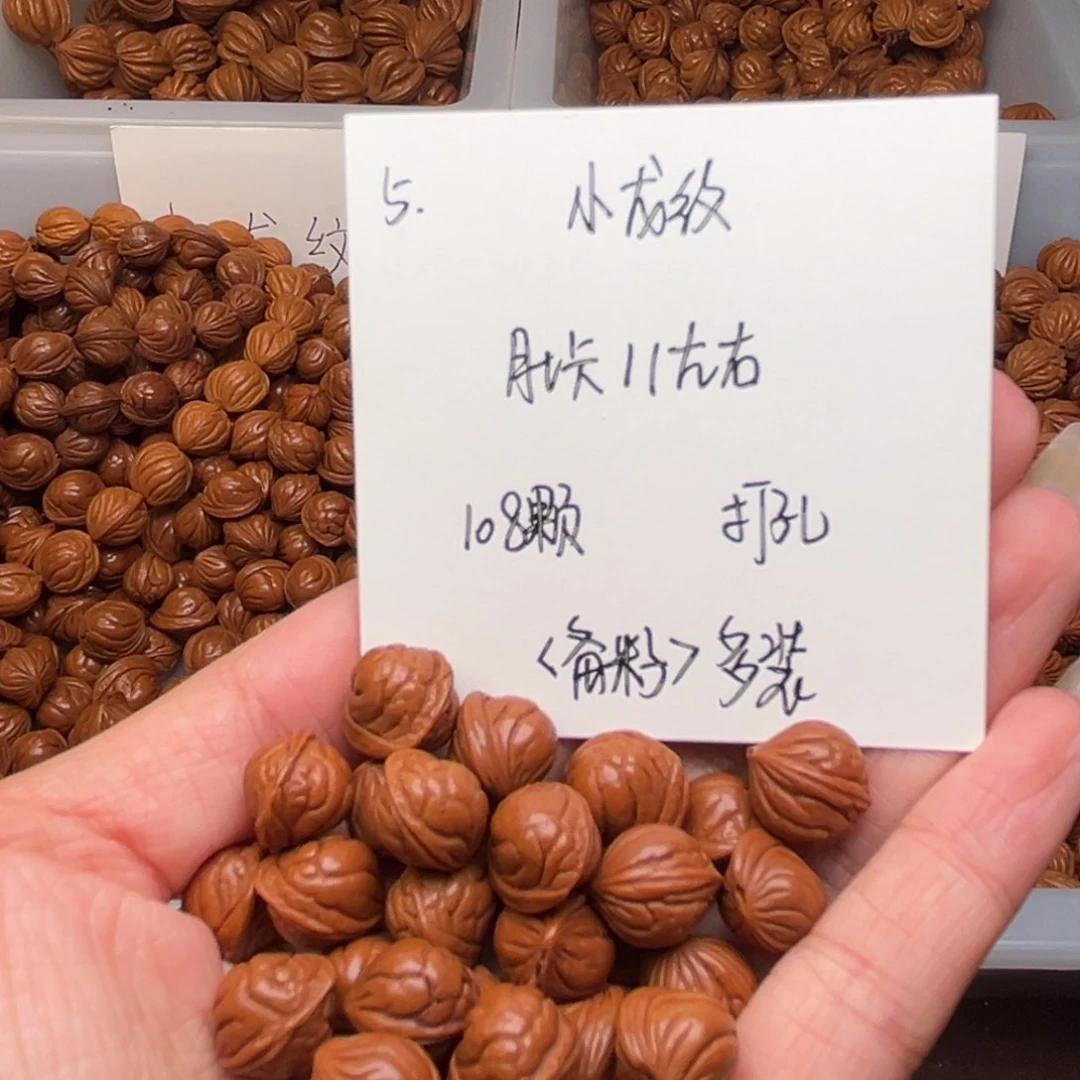 5. 小龙纹
肚卡11左右
108颗 打孔
<备籽>多装
龙纹